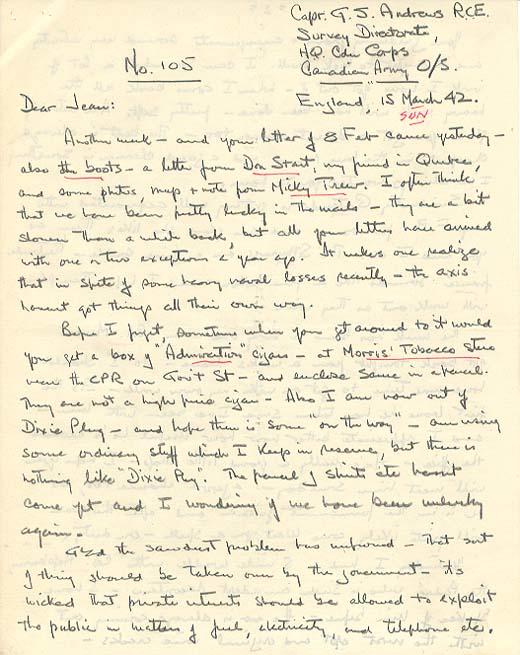 Capt. G. S. Andrews R.C.E.
Survey Directorate,
H.Q. Cdn Corps
Canadian Army O/S.
No. 105
England, 15 March 42.
SUN
Dear Jean:
Another week – and your letter of 8 Feb came yesterday –
also the boots – a letter from Don Start, my friend in Quebec,
and some photos, map & note from Micky Trew. I often think
that we have been pretty lucky in the mails – they are a bit
slower than a while back, but all your letters have arrived
with one or two exceptions a year ago. It makes one realize
that in spite of some heavy naval losses recently – the axis
havent got things all their own way.
Before I forget, sometime when you get around to it would
you get a box of "Admiration" cigars – at Morris' Tobacco Store
near the CPR on Gov't St – and enclose same in a parcel.
They are not a high price cigar – Also I am now out of
Dixie Plug – and hope there is some "on the way" – am using
some ordinary stuff which I keep in reserve, but there is
nothing like "Dixie Plug". The parcel of shirts etc hasnt
come yet and I wondering if we have been unlucky
again.
Glad the sawdust problem has improved – That sort
of thing should be taken over by the government – its
wicked that private interests should be allowed to exploit
the public in matters of fuel, electricity, and telephone etc.